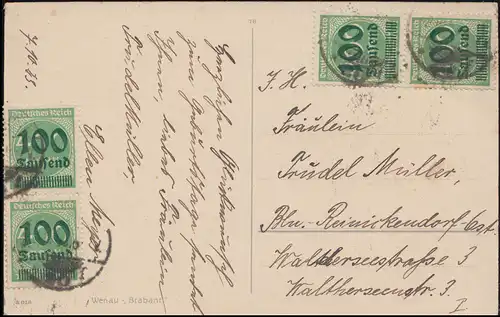 7.10.23.
Herzlichen Glückwunsch
zum Geburtstage sendet
Ihnen, liebes Fräulein
Trudel Müller,
Ellen
Deutsches Reich
100
Tausend
Deutsches Reich
100
Tausend
100
Tausend
100
Tausend
Fräulein
Trudel Müller,
Bln.-Reinickendorf-Ost.
Waltherseestraße 3
Waltherseestr. 3.
I
"Wenau-Brabant"